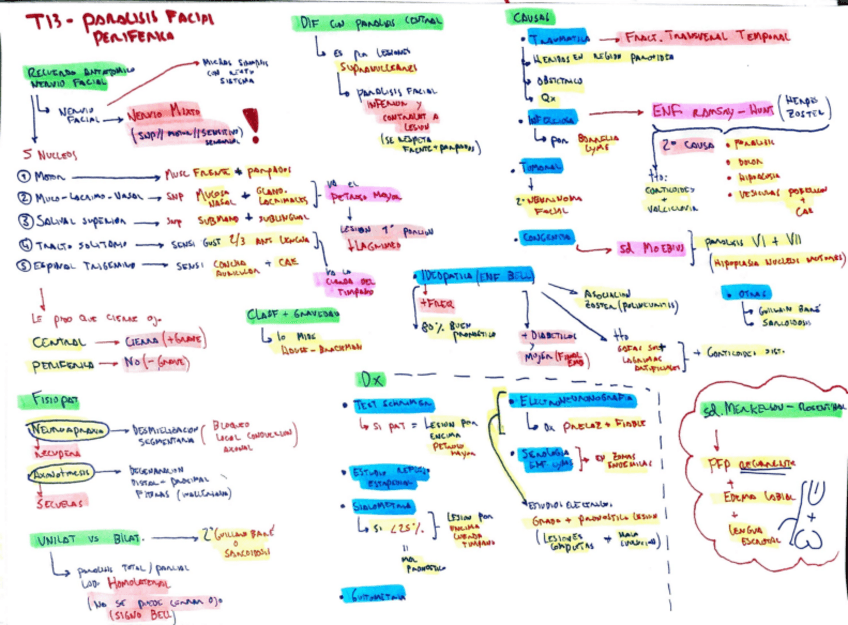 T13 - PARALISIS FACIAL
PERIFERICA
RECUERDO ANATOMICO
NERVIO FACIAL
NERVIO
FACIAL
MUCHAS SINAPSIS
CON RESTO
SISTEMA
NERVIO MIXTO
(SNP // MOTOR // SENSITIVO)
SENSORIAL
!
5 NUCLEOS
① MOTOR → MUSC FRENTE + PARPADOS
② MUCO-LACRIMO-NASAL → SNP MUCOSA NASAL + GLAND. LACRIMALES
③ SALIVAL SUPERIOR → SNP SUBMAND + SUBLINGUAL
④ TRACTO SOLITARIO → SENSI GUST 2/3 ANT LENGUA
⑤ ESPINAL TRIGEMINO → SENSI CONCHA AURICULAR + CAE
VA EL
PETROSO MAYOR
LESION 1ª PORCION
↓ LAGRIMEO
VA LA
CUERDA DEL
TIMPANO
LE PIDO QUE CIERRE OJO
CENTRAL → CIERRA (+GRAVE)
PERIFERICA → NO (-GRAVE)
CLASF + GRAVEDAD
LO MIDE
HOUSE-BRACKMAN
DIF CON PARALISIS CENTRAL
ES POR LESIONES
SUPRANUCLEARES
PARALISIS FACIAL
INFERIOR Y
CONTRALAT A
LESION
(SE RESPETA
FRENTE + PARPADOS)
CAUSAS
• TRAUMATICA → FRACT. TRANSVERSAL TEMPORAL
HERIDAS EN REGION PAROTIDEA
OBSTETRICO
QX
• INFECCIOSA → ENF RAMSAY-HUNT (HERPES
ZOSTER)
POR BORRELIA
LYME
2ª CAUSA
• PARALISIS
• DOLOR
• HIPOACUSIA
• VESICULAS PABELLON
+
CAE
TTO:
CORTICOIDES
+
VALACICLOVIR
• TUMORAL
2º NEURINOMA
FACIAL
• CONGENITA → SD. MOEBIUS
PARALISIS VI + VII
(HIPOPLASIA NUCLEOS MOTORES)
• IDEOPATICA (ENF BELL)
+ FREC
80% BUEN
PRONOSTICO
+ DIABETICOS
MUJER (FINAL
EMB)
ASOCIACION
ZOSTER (POLINEURITIS)
TTO
GOTAS
LAGRIMAS
ARTIFICIALES
+ CORTICOIDES
• OTRAS
GUILLAIN BARÉ
SARCOIDOSIS
FISIOPAT
NEUROAPRAXIA → DESMIELINIZACION
SEGMENTARIA
(BLOQUEO
LOCAL CONDUCCION
AXONAL)
RECUPERA
AXONOTMESIS → DEGENERACION
DISTAL-PROXIMAL
FIBRAS (WALLERIANA)
SECUELAS
UNILAT VS BILAT. → 2º GUILLAIN BARÉ
O
SARCOIDOSIS
PARALISIS TOTAL/PARCIAL
LADO HOMOLATERAL
(NO SE PUEDE CERRAR OJO
(SIGNO BELL)
DX
• TEST SCHIRMER
SI PAT = LESION POR
ENCIMA
PETROSO
MAYOR
• ESTUDIO REFLEJO
ESTAPEDIAL
• SIALOMETRIA
SI <25%
LESION POR
ENCIMA
CUERDA
TIMPANO
MAL
PRONOSTICO
• GUSTOMETRIA
• ELECTRONEURONOGRAFIA
DX PRECOZ + FIABLE
• SEROLOGIA
ENF. LYME → EN ZONAS
ENDEMICAS
ESTUDIOS ELECTRICOS:
GRADO + PRONOSTICO LESION
(LESIONES
COMPLETAS → MALA
EVOLUCION)
SD. MERKELSON-ROSENTHAL
PFP RECURRENTE
+
EDEMA LABIAL
+
LENGUA
ESCROTAL